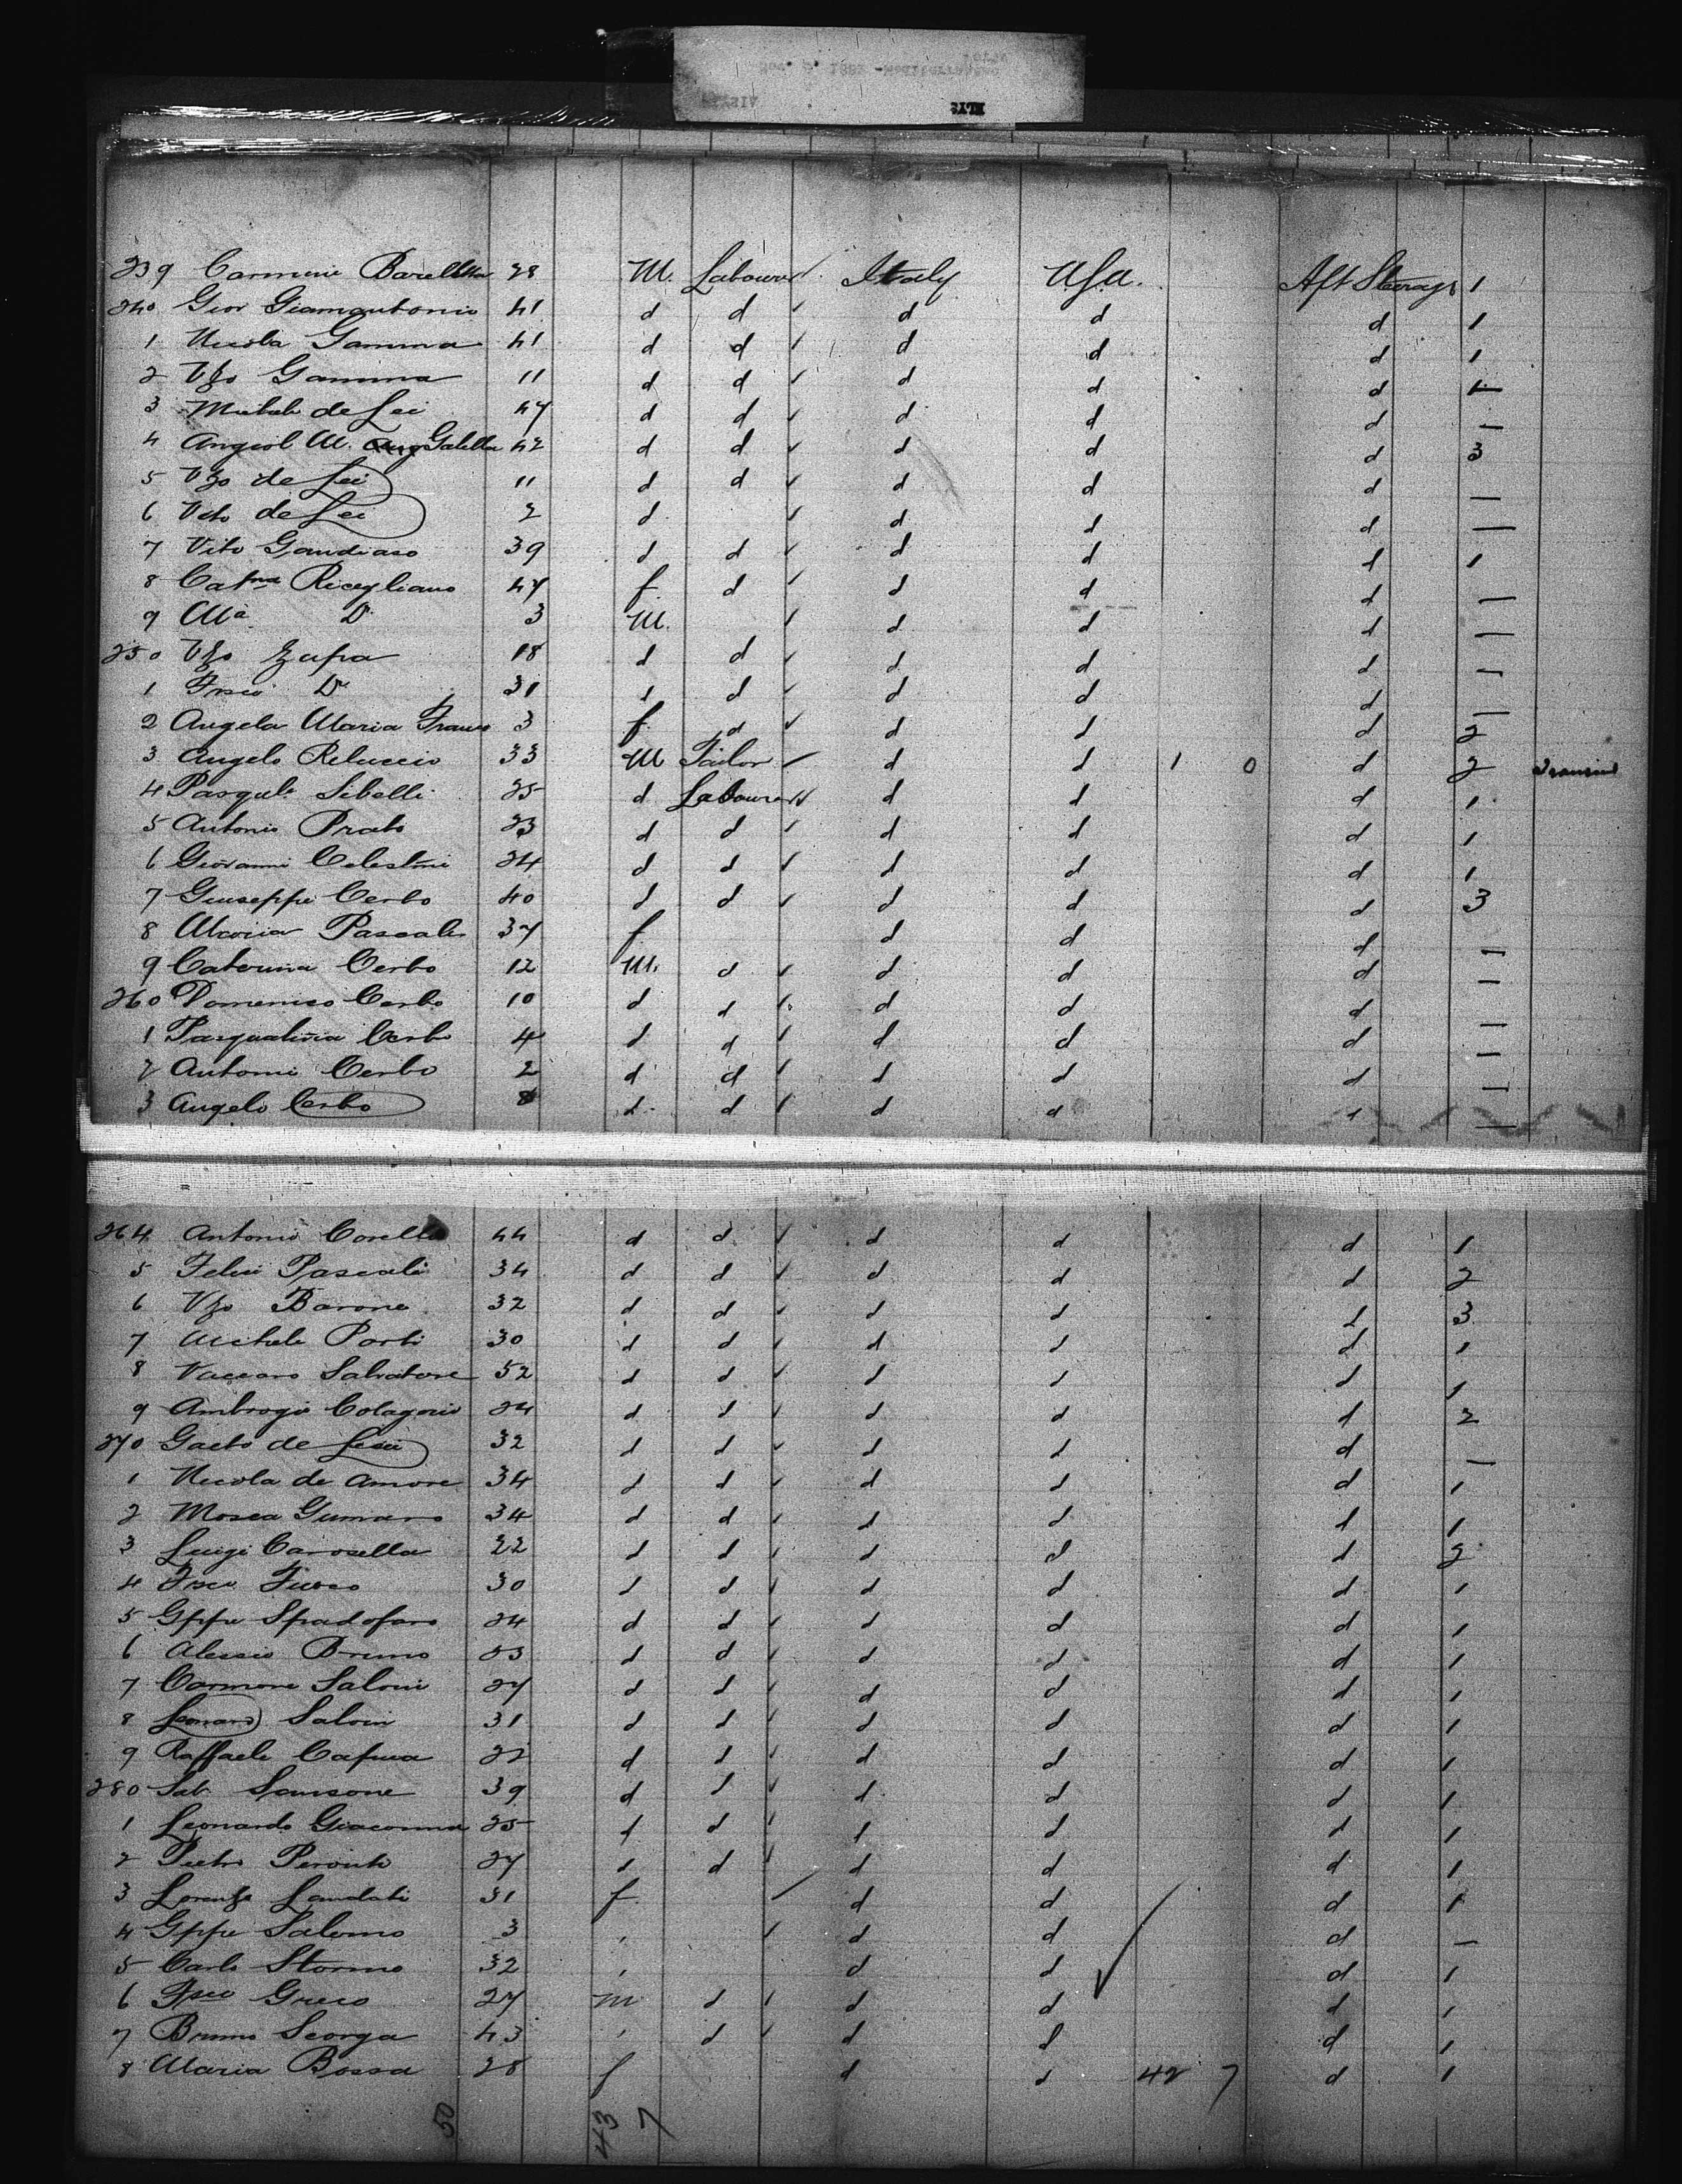 239 Carmine 28 M. Labourer Italy USA. Aft Steerage 1
240 Gior Giamantonio 41 d d d d d 1
1 Nicola Gamma 41 d d d d d 1
2 Vzo Gamma 11 d d d d d 1
3 Michele de Lei 47 d d d d d —
4 Angiol M. Galella 42 d d d d d 3
5 Vzo de Lei 11 d d d d d —
6 Vito de Lei 2 d d d d —
7 Vito Gaudiaso 39 d d d d d 1
8 Catna Ricigliano 47 f d d d d —
9 Ma Do 3 M. d d d —
250 Vzo Zupa 18 d d d d d —
1 Frsco Do 31 d d d d d —
2 Angela Maria Franco 3 f d d d d 2
3 Angelo Reluccio 33 M Tailor d d 1 0 d 2
4 Pasqule Sibelli 25 d Labourer d d d 1
5 Antonio Prato 23 d d d d d 1
6 Giovanni Celestini 24 d d d d d 1
7 Giuseppe Cerbo 40 d d d d d 3
8 Maria Pascale 37 f d d d —
9 Caterina Cerbo 12 M. d d d d —
260 Domenico Cerbo 10 d d d d d —
1 Pasqualina Cerbo 4 d d d d d —
2 Antonio Cerbo 2 d d d d d —
3 Angelo Cerbo 8 d d d d d —
264 Antonio Corella 44 d d d d d 1
5 Felice Pascale 34 d d d d d 2
6 Vzo Barone 32 d d d d d 3
7 Michele Porti 30 d d d d d 1
8 Vaccaro Salvatore 52 d d d d d 1
9 Ambrogio 24 d d d d d 2
270 Gaeto de 32 d d d d d —
1 Nicola de Amore 34 d d d d d 1
2 Mosca Gumaro 34 d d d d d 1
3 Luigi Carosella 22 d d d d d 2
4 Frsco Fusco 30 d d d d d 1
5 Gppe Spadofaro 24 d d d d d 1
6 Alessio Bruno 53 d d d d d 1
7 Carmone Saloni 27 d d d d d 1
8 Leonard 31 d d d d d 1
9 Raffaele Capua 22 d d d d d 1
280 Sab. Sansone 39 d d d d d 1
1 Leonardo Giacomma 25 d d d d d 1
2 Pietro 27 d d d d d 1
3 Lorenza Laudati 31 f d d d 1
4 Gppe Salerno 3 " d d d —
5 Carlo Stormo 32 " d d d 1
6 Fsco Greco 27 m d d d d 1
7 Bruno Scorga 43 " d d d d 1
8 Maria Bossa 28 f d d 42 7 d 1
50 43 7